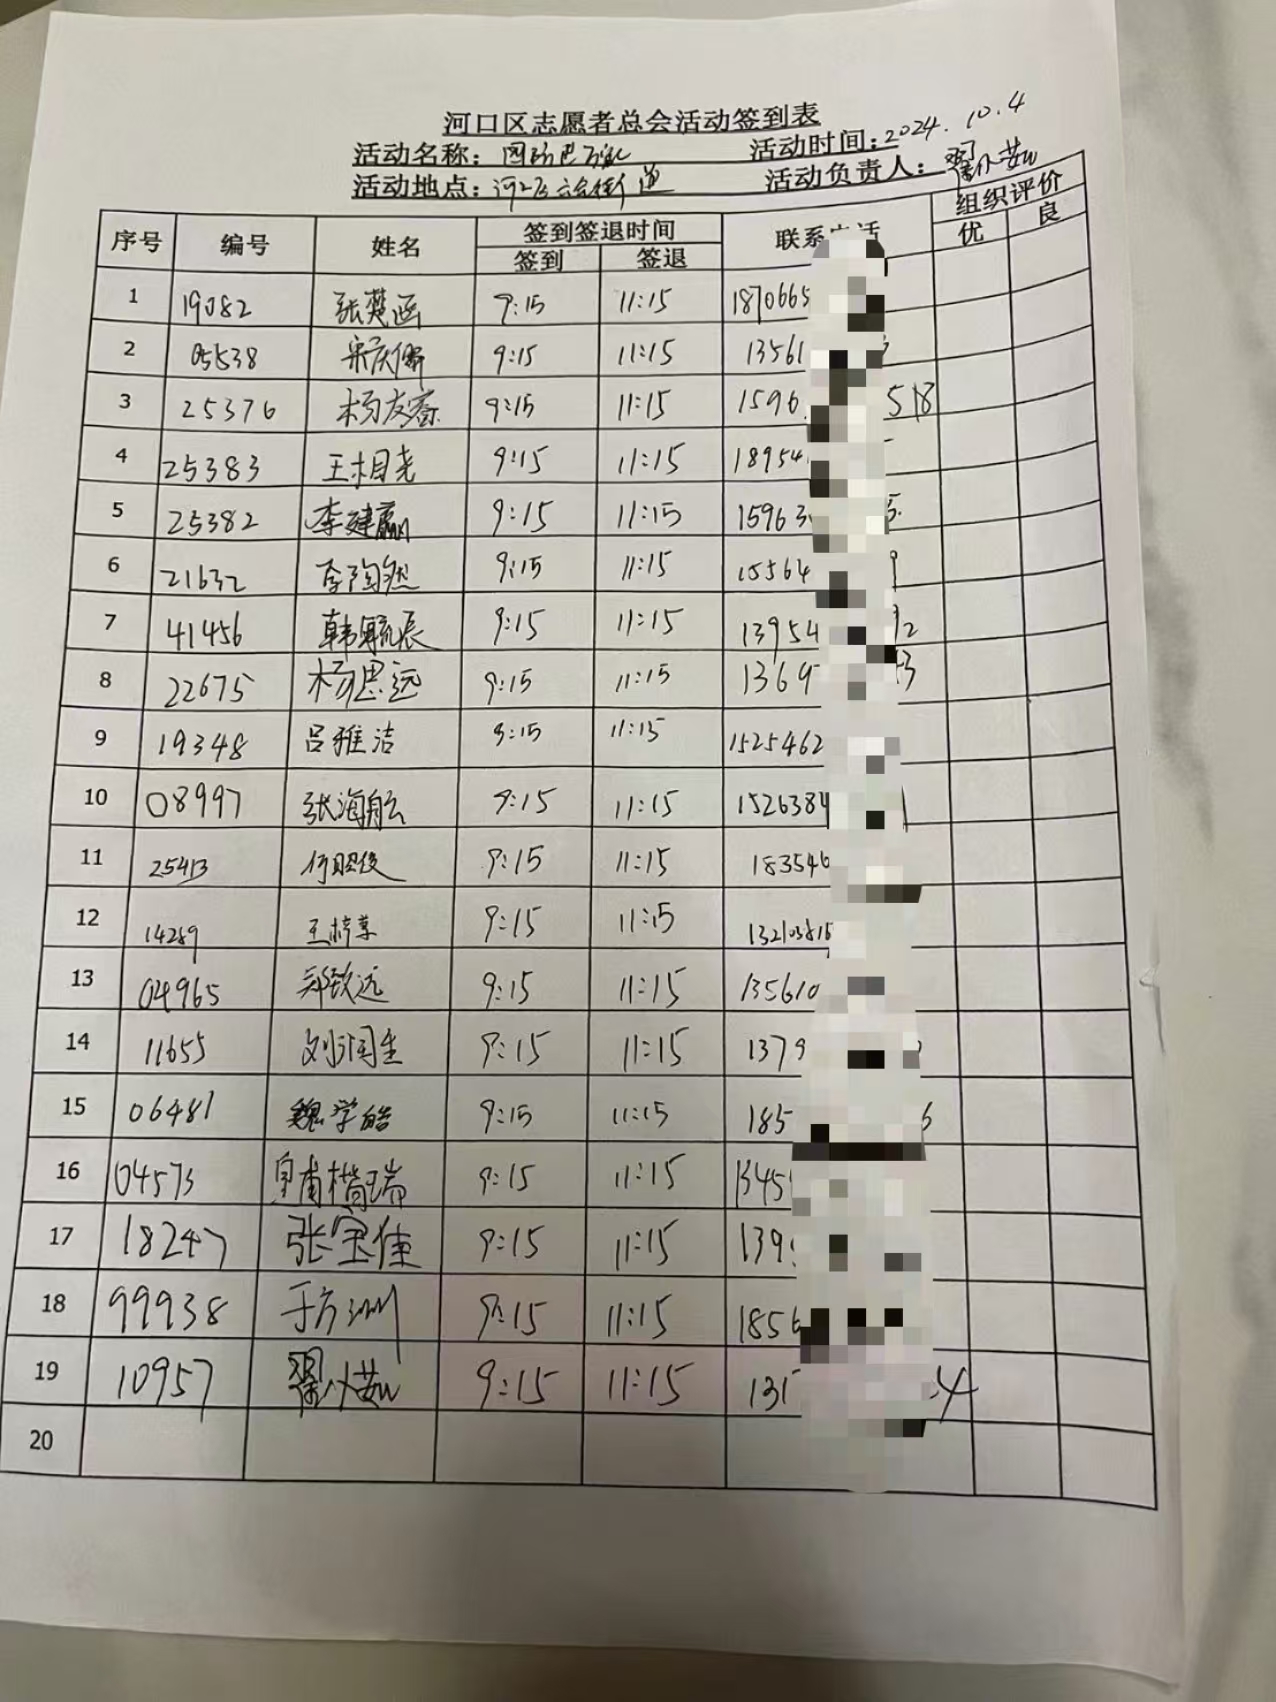 河口区志愿者总会活动签到表
活动名称： 活动时间：2024.10.4
活动地点：河口区六合街道 活动负责人：
序号 编号 姓名 签到签退时间 联系电话 组织评价
签到 签退 优 良
1 19082 张楚函 9:15 11:15 1870665
2 05538 9:15 11:15 13561
3 25376 杨友睿 9:15 11:15 1596 518
4 25383 王相尧 9:15 11:15 18954
5 25382 李建赢 9:15 11:15 15963
6 21632 李陶然 9:15 11:15 15564
7 41456 韩毓辰 9:15 11:15 13954 92
8 22675 杨思远 9:15 11:15 1369 3
9 19348 吕雅洁 9:15 11:15 1525462
10 08997 张海航 9:15 11:15 1526384
11 25413 9:15 11:15 183546
12 14289 9:15 11:15
13 04965 郑致远 9:15 11:15 135610
14 11655 刘润生 9:15 11:15 1379
15 06481 魏学皓 9:15 11:15 185 6
16 04573 皇甫楷瑞 9:15 11:15 1345
17 18247 张宝佳 9:15 11:15 139
18 99938 于方洲 9:15 11:15 1856
19 10957 9:15 11:15 131 4
20